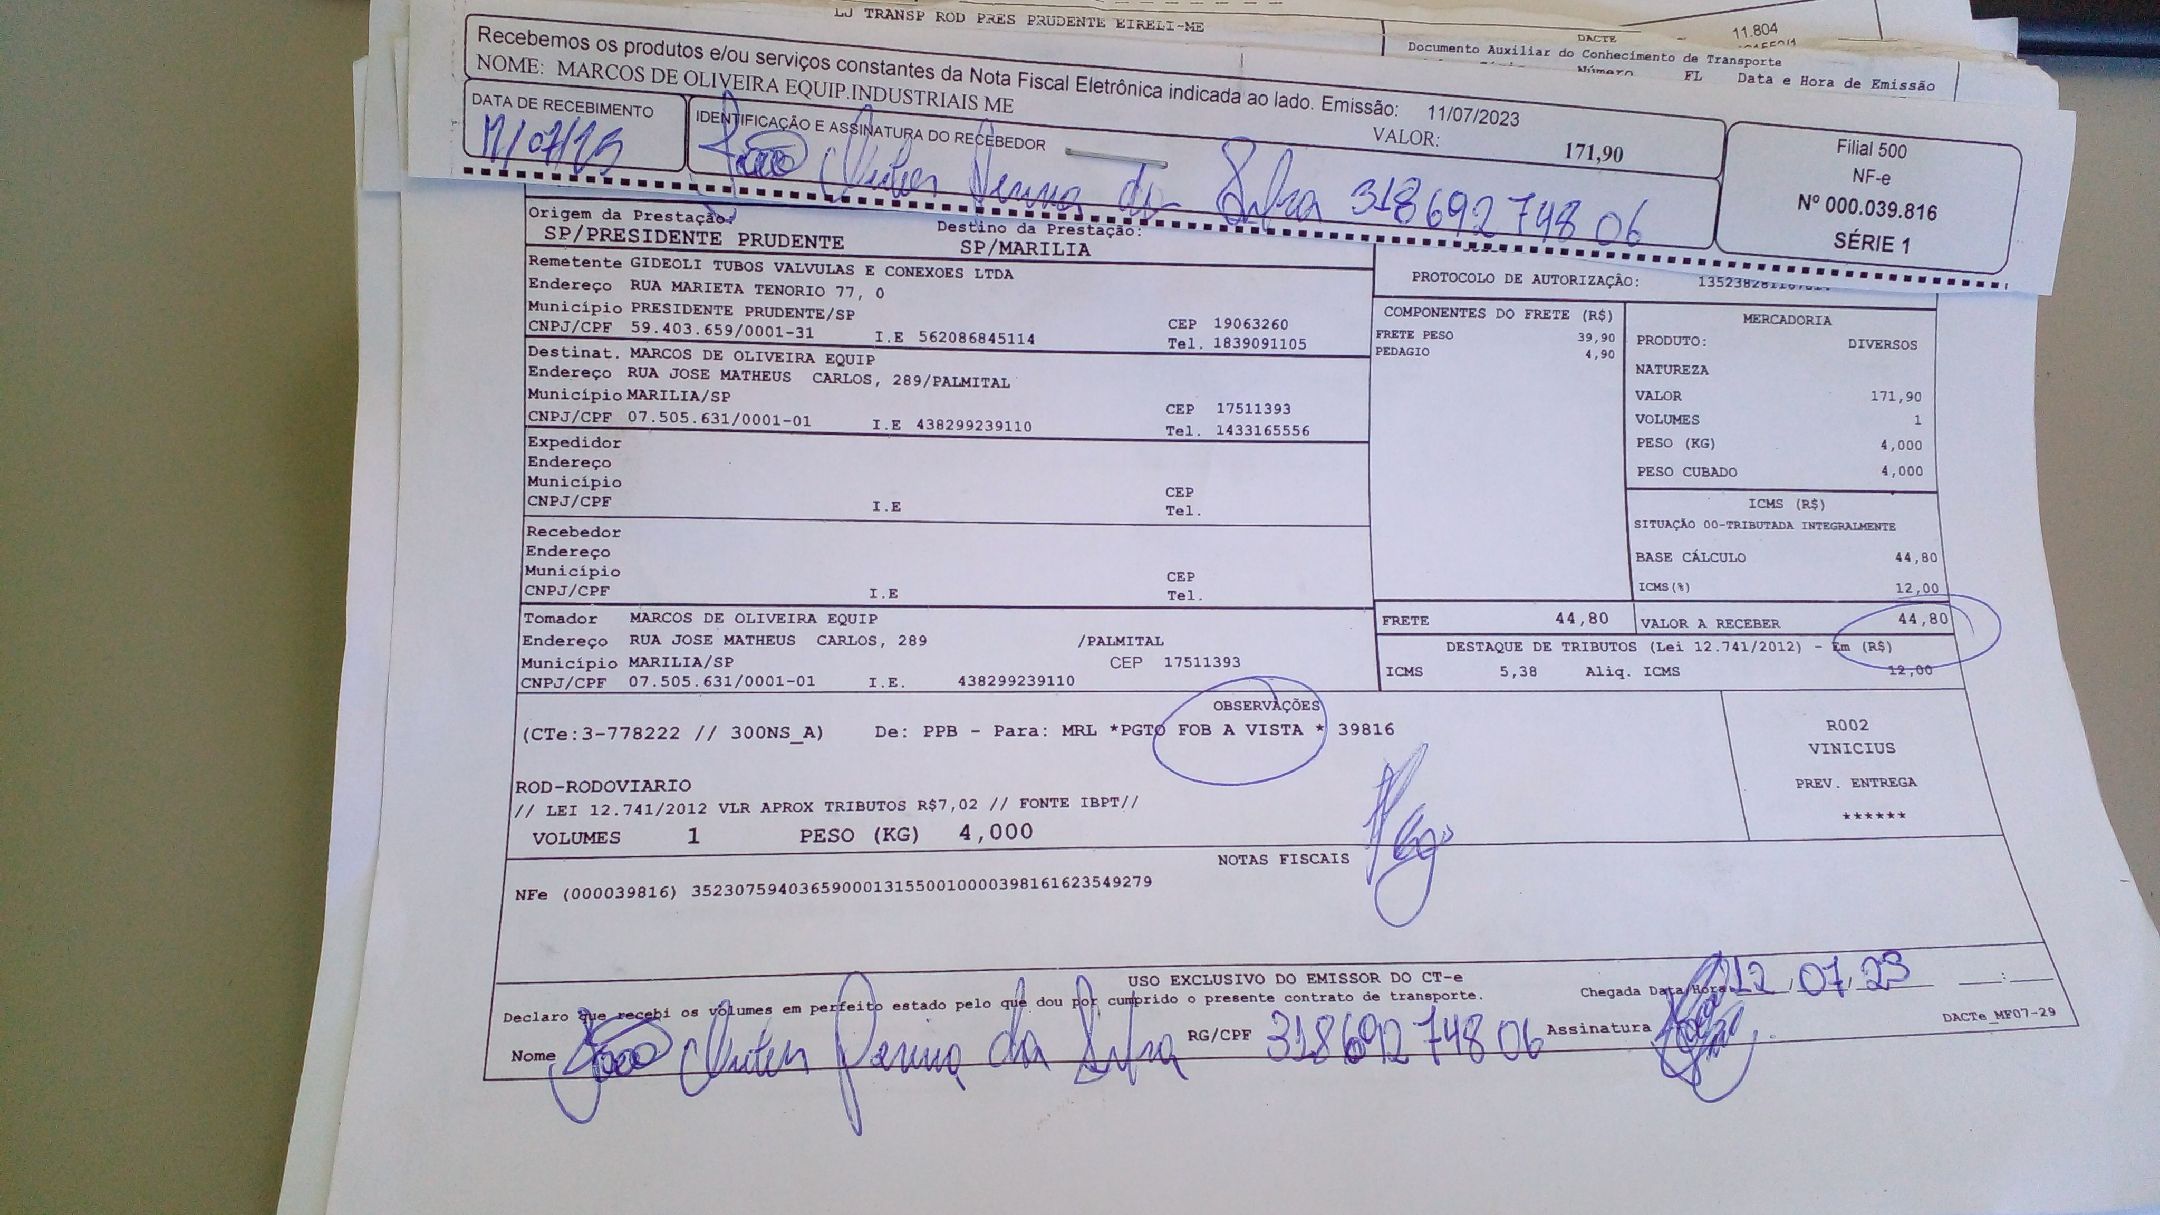 LJ TRANSP ROD PRES PRUDENTE EIRELI-ME
DACTE
11.804
Documento Auxiliar do Conhecimento de Transporte
Número FL Data e Hora de Emissão
Recebemos os produtos e/ou serviços constantes da Nota Fiscal Eletrônica indicada ao lado. Emissão: 11/07/2023
NOME: MARCOS DE OLIVEIRA EQUIP.INDUSTRIAIS ME
VALOR: 171,90
DATA DE RECEBIMENTO
IDENTIFICAÇÃO E ASSINATURA DO RECEBEDOR
João da Silva 318692748 06
Filial 500
NF-e
Nº 000.039.816
SÉRIE 1
Origem da Prestação:
SP/PRESIDENTE PRUDENTE
Destino da Prestação:
SP/MARILIA
Remetente GIDEOLI TUBOS VALVULAS E CONEXOES LTDA
Endereço RUA MARIETA TENORIO 77, 0
Município PRESIDENTE PRUDENTE/SP
CEP 19063260
CNPJ/CPF 59.403.659/0001-31 I.E 562086845114 Tel. 1839091105
Destinat. MARCOS DE OLIVEIRA EQUIP
Endereço RUA JOSE MATHEUS CARLOS, 289/PALMITAL
Município MARILIA/SP
CEP 17511393
CNPJ/CPF 07.505.631/0001-01 I.E 438299239110 Tel. 1433165556
Expedidor
Endereço
Município CEP
CNPJ/CPF I.E Tel.
Recebedor
Endereço
Município CEP
CNPJ/CPF I.E Tel.
Tomador MARCOS DE OLIVEIRA EQUIP
Endereço RUA JOSE MATHEUS CARLOS, 289 /PALMITAL
Município MARILIA/SP CEP 17511393
CNPJ/CPF 07.505.631/0001-01 I.E. 438299239110
PROTOCOLO DE AUTORIZAÇÃO:
COMPONENTES DO FRETE (R$)
FRETE PESO 39,90
PEDAGIO 4,90
MERCADORIA
PRODUTO: DIVERSOS
NATUREZA
VALOR 171,90
VOLUMES 1
PESO (KG) 4,000
PESO CUBADO 4,000
ICMS (R$)
SITUAÇÃO 00-TRIBUTADA INTEGRALMENTE
BASE CÁLCULO 44,80
ICMS(%) 12,00
FRETE 44,80 VALOR A RECEBER 44,80
DESTAQUE DE TRIBUTOS (Lei 12.741/2012) - Em (R$)
ICMS 5,38 Aliq. ICMS 12,00
OBSERVAÇÕES
(CTe:3-778222 // 300NS_A) De: PPB - Para: MRL *PGTO FOB A VISTA * 39816
ROD-RODOVIARIO
// LEI 12.741/2012 VLR APROX TRIBUTOS R$7,02 // FONTE IBPT//
VOLUMES 1 PESO (KG) 4,000
R002
VINICIUS
PREV. ENTREGA
******
NOTAS FISCAIS
NFe (000039816) 35230759403659000131550010000398161623549279
USO EXCLUSIVO DO EMISSOR DO CT-e
Declaro que recebi os volumes em perfeito estado pelo que dou por cumprido o presente contrato de transporte.
Chegada Data/Hora 12, 07, 23 :
Nome João da Silva RG/CPF 318692748 06 Assinatura
DACTe_MF07-29